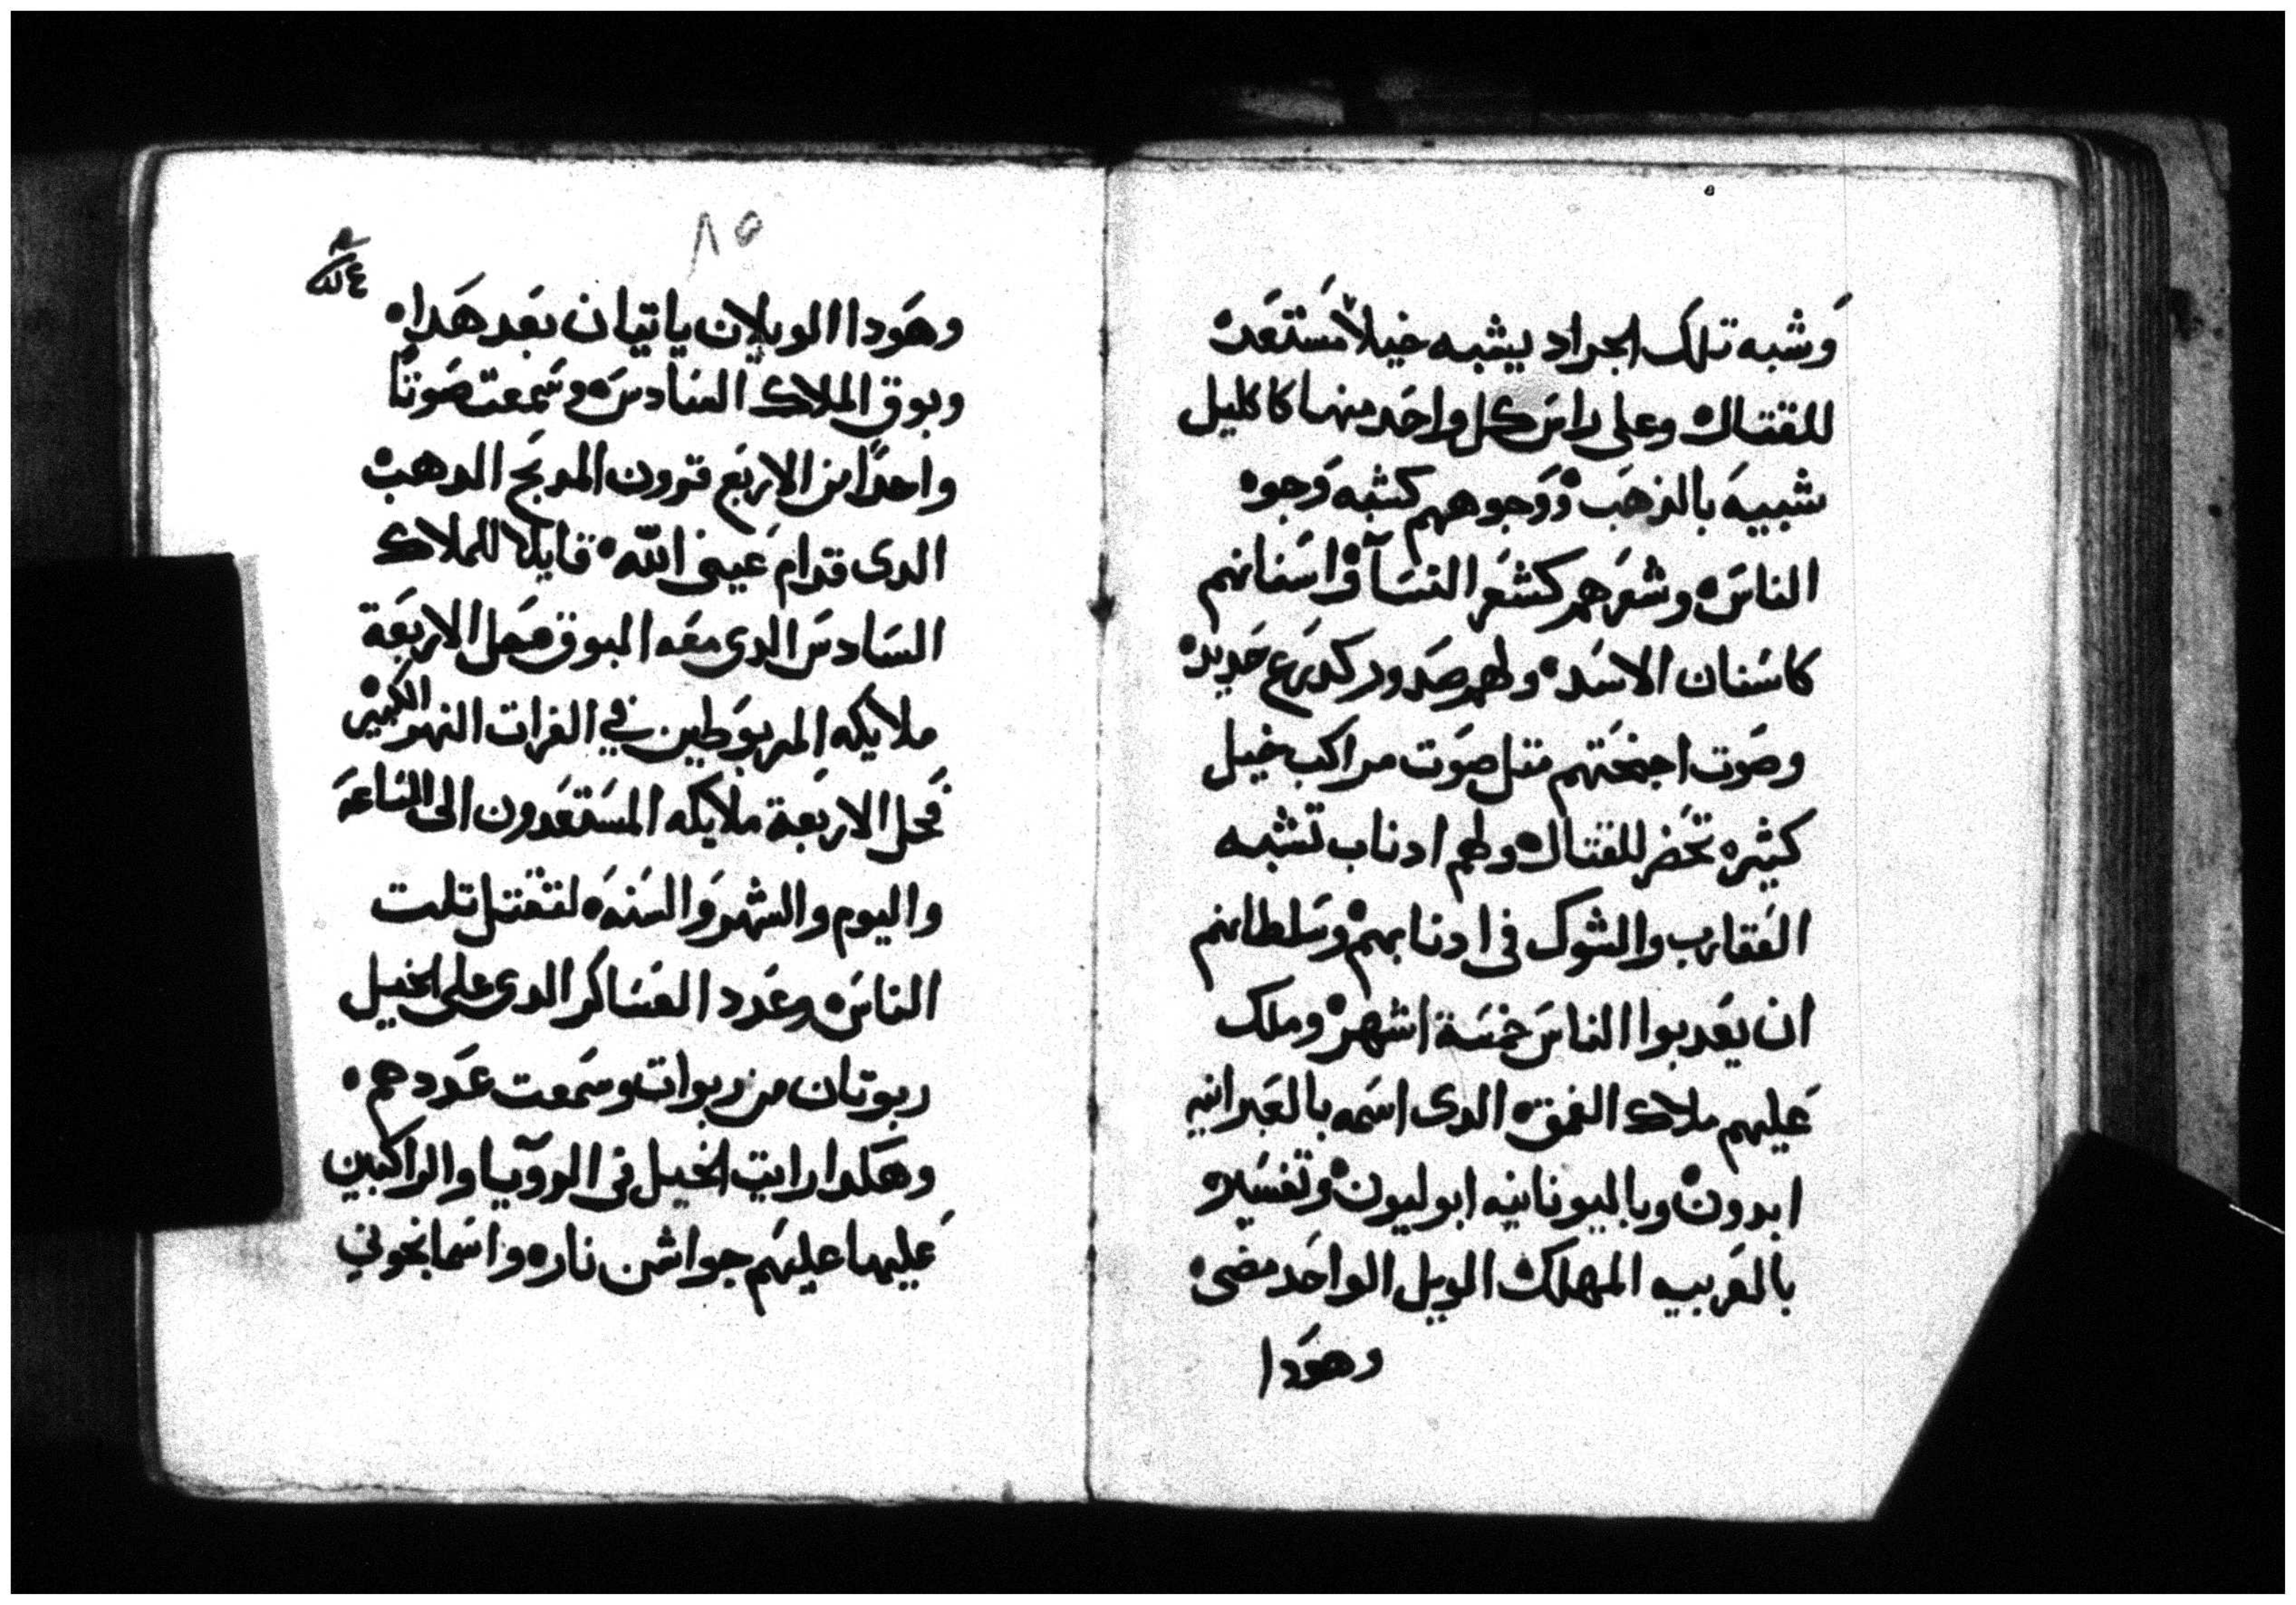 وشبه تلك الجراد يشبه خيلاً مستعده
للقتال وعلى راس كل واحد منها كاكليل
شبيه بالذهب ووجوههم كشبه وجوه
الناس وشعرهم كشعر النسآ واسنانهم
كاسنان الاسد ولهم صدور كدرع حديد
وصوت اجنحتهم متل صوت مراكب خيل
كثيره تحضر للقتال ولهم ادناب تشبه
العقارب والشوك في ادنابهم وسلطانهم
ان يعدبوا الناس خمسة اشهر وملك
عليهم ملاك العمق الدى اسمه بالعبرانيه
ابدون وباليونانيه ابوليون وتفسيره
بالعربيه المهلك الويل الواحد مضى
وهودا
٨٥
وهودا الويلان ياتيان بعد هدا
وبوق الملاك السادس وسمعت صوتاً
واحداً من الاربع قرون المدبح الدهب
الدى قدام عينى الله قايلا للملاك
السادس الدى معه البوق حل الاربعة
ملايكه المربوطين في الفرات النهر الكبير
فحل الاربعة ملايكه المستعدون الى الساعه
واليوم والشهر والسنه لتقتل تلت
الناس وعدد العساكر الدى على الخيل
ربوتان من ربوات وسمعت عددهم
وهكدا رايت الخيل فى الروٓيا والراكبين
عليها عليهم جواشن نار واسمانجوني